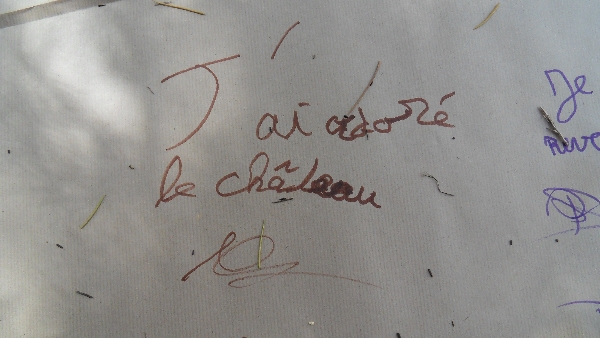 J'ai adoré
le château
Je